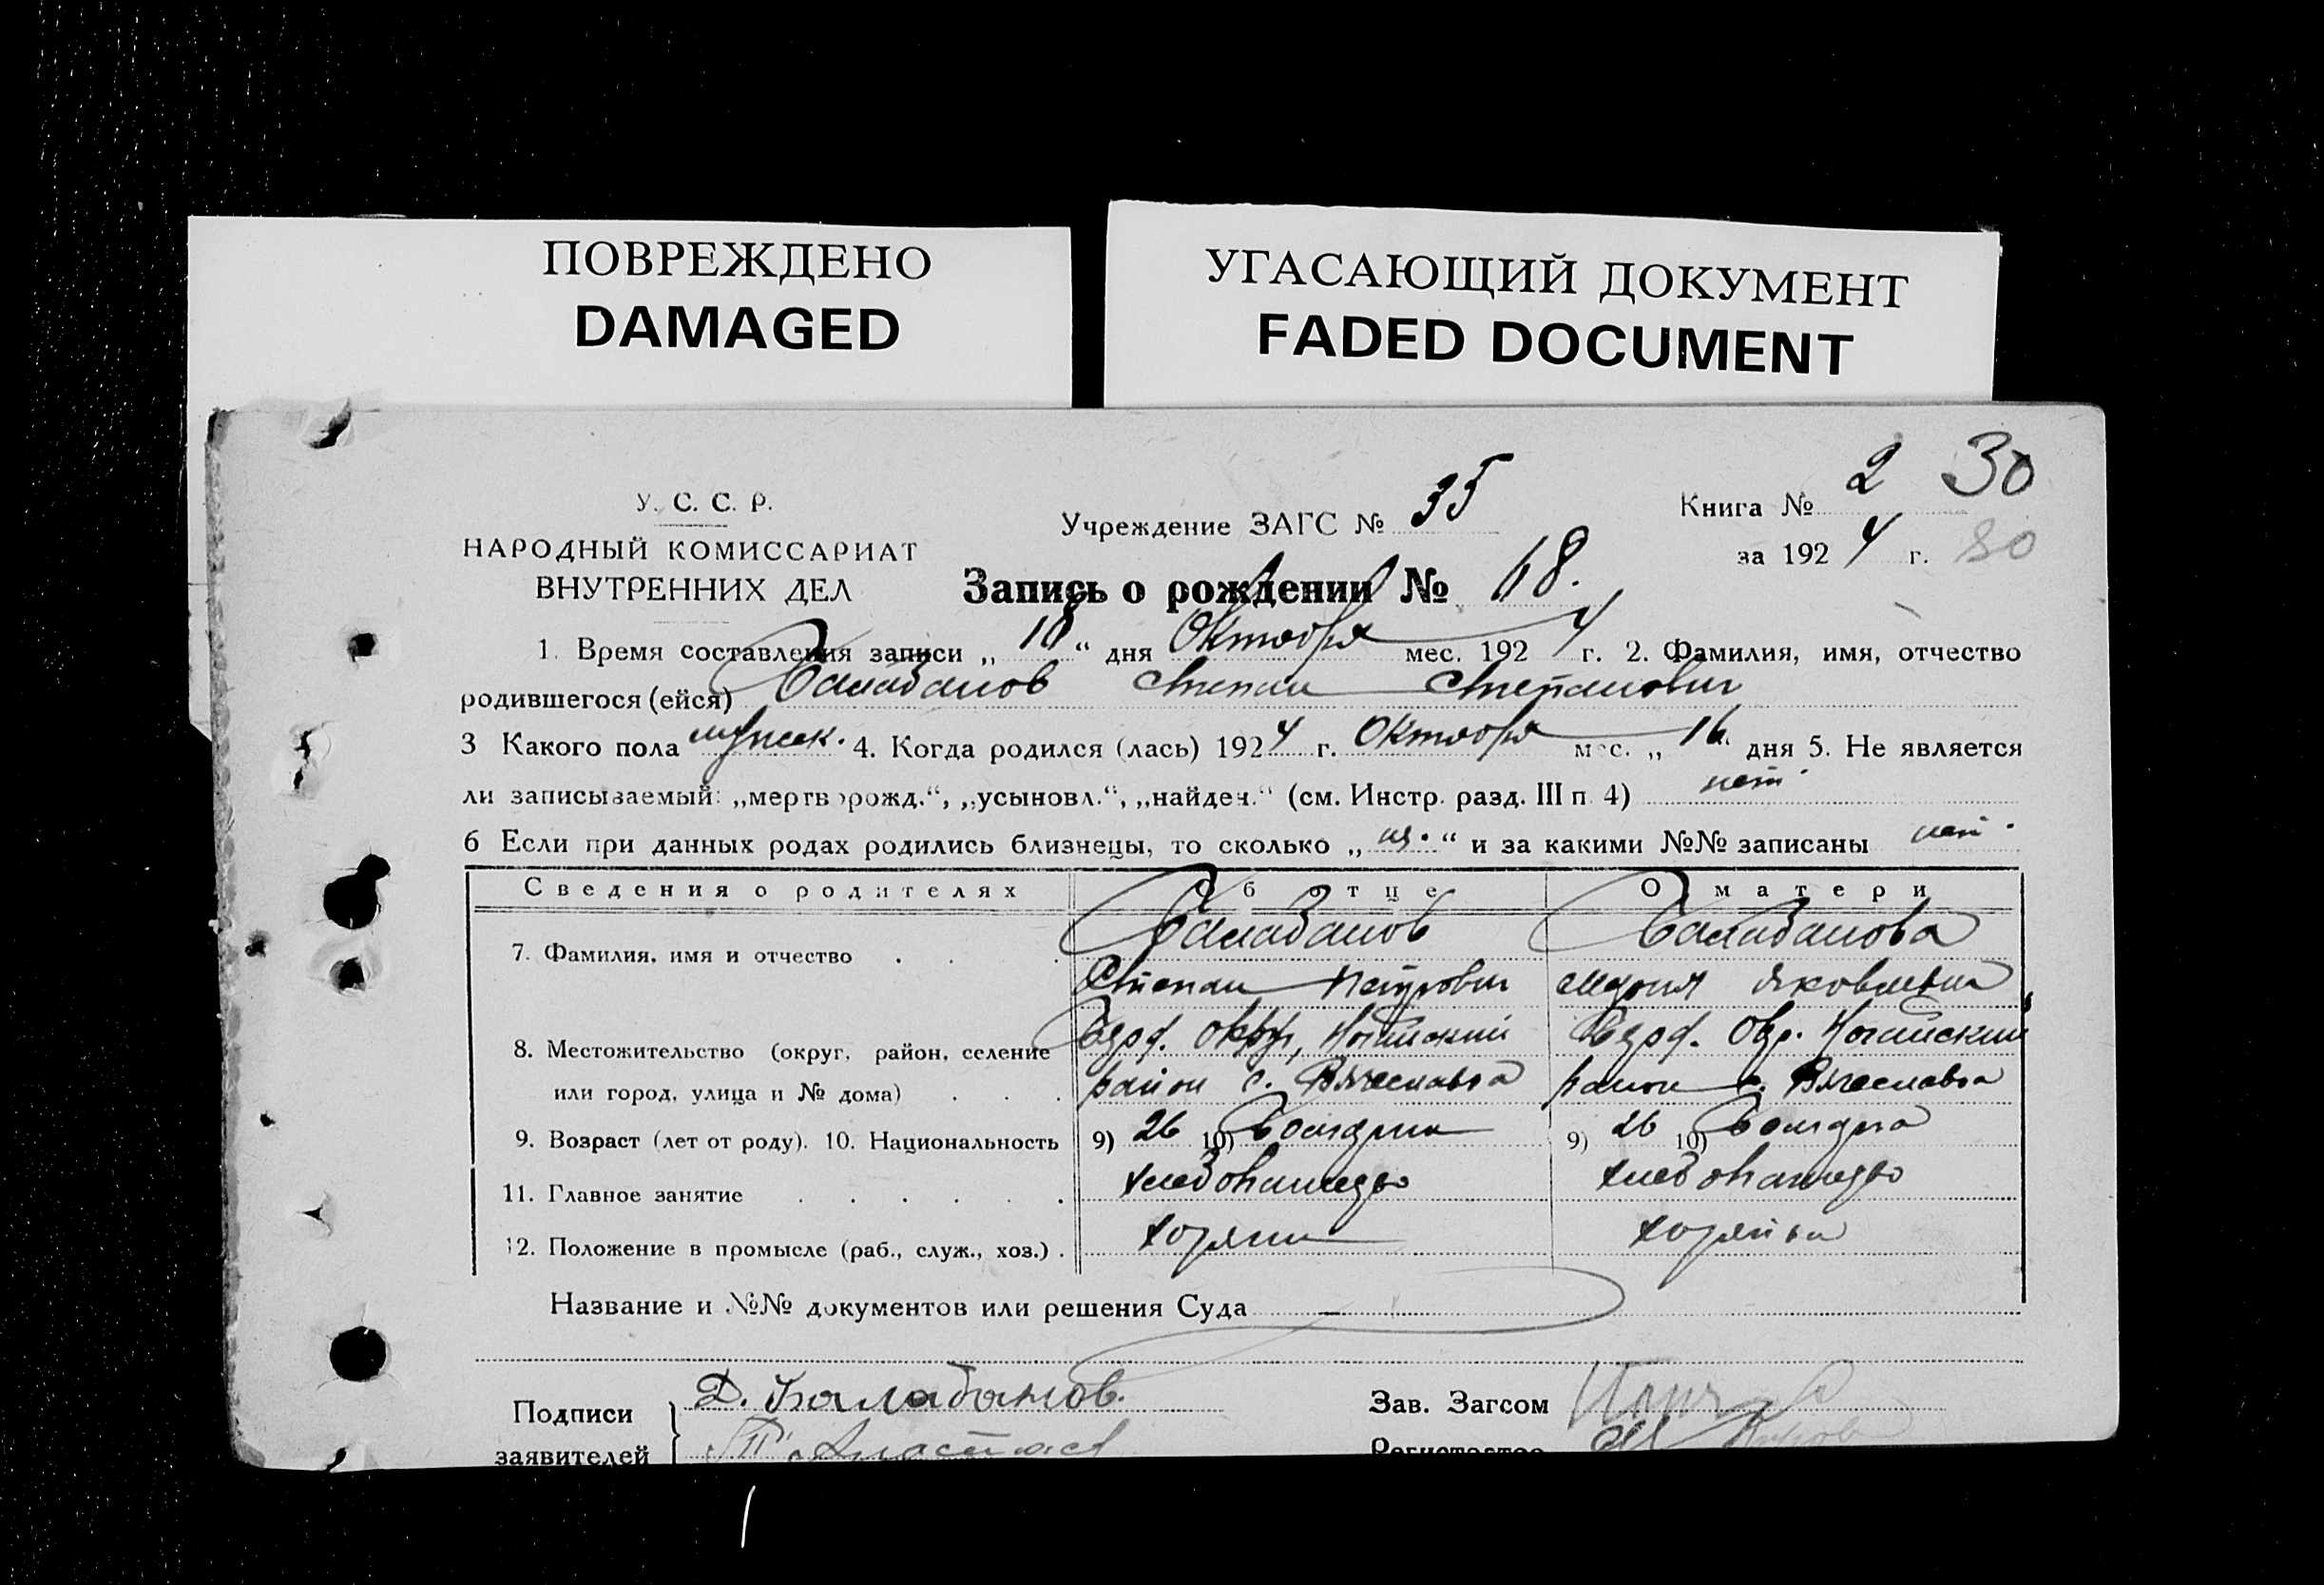 ПОВРЕЖДЕНО
DAMAGED
УГАСАЮЩИЙ ДОКУМЕНТ
FADED DOCUMENT
У. С. С. Р.
НАРОДНЫЙ КОМИССАРИАТ
ВНУТРЕННИХ ДЕЛ
Учреждение ЗАГС № 35
Книга № 2 30
за 1924 г. 30
Запись о рождении № 68.
1. Время составления записи „18“ дня Октября мес. 1924 г. 2. Фамилия, имя, отчество
родившегося (ейся) Балабанов Степан Степанович
3 Какого пола мужск. 4. Когда родился (лась) 1924 г. Октября мес. „16“ дня 5. Не является
ли записываемый: „мертворожд.“, „усыновл.“, „найден.“ (см. Инстр. разд. III п. 4) нет
6 Если при данных родах родились близнецы, то сколько „ “ и за какими №№ записаны нет.
Сведения о родителях Об отце О матери
7. Фамилия, имя и отчество . . . Балабанов Балабанова
Степан Петрович Мария Яковлевна
8. Местожительство (округ, район, селение Бердф. Окр., Ногайский Бердф. Окр. Ногайский
или город, улица и № дома) . . . район с. Вячеславка район с. Вячеславка
9. Возраст (лет от роду). 10. Национальность 9) 26 10) Болгарин 9) 26 10) Болгарка
11. Главное занятие . . . . . . хлебопашество хлебопашество
12. Положение в промысле (раб., служ., хоз.) . хозяин хозяйка
Название и №№ документов или решения Суда —
Подписи заявителей } Д. Балабанов.
Зав. Загсом